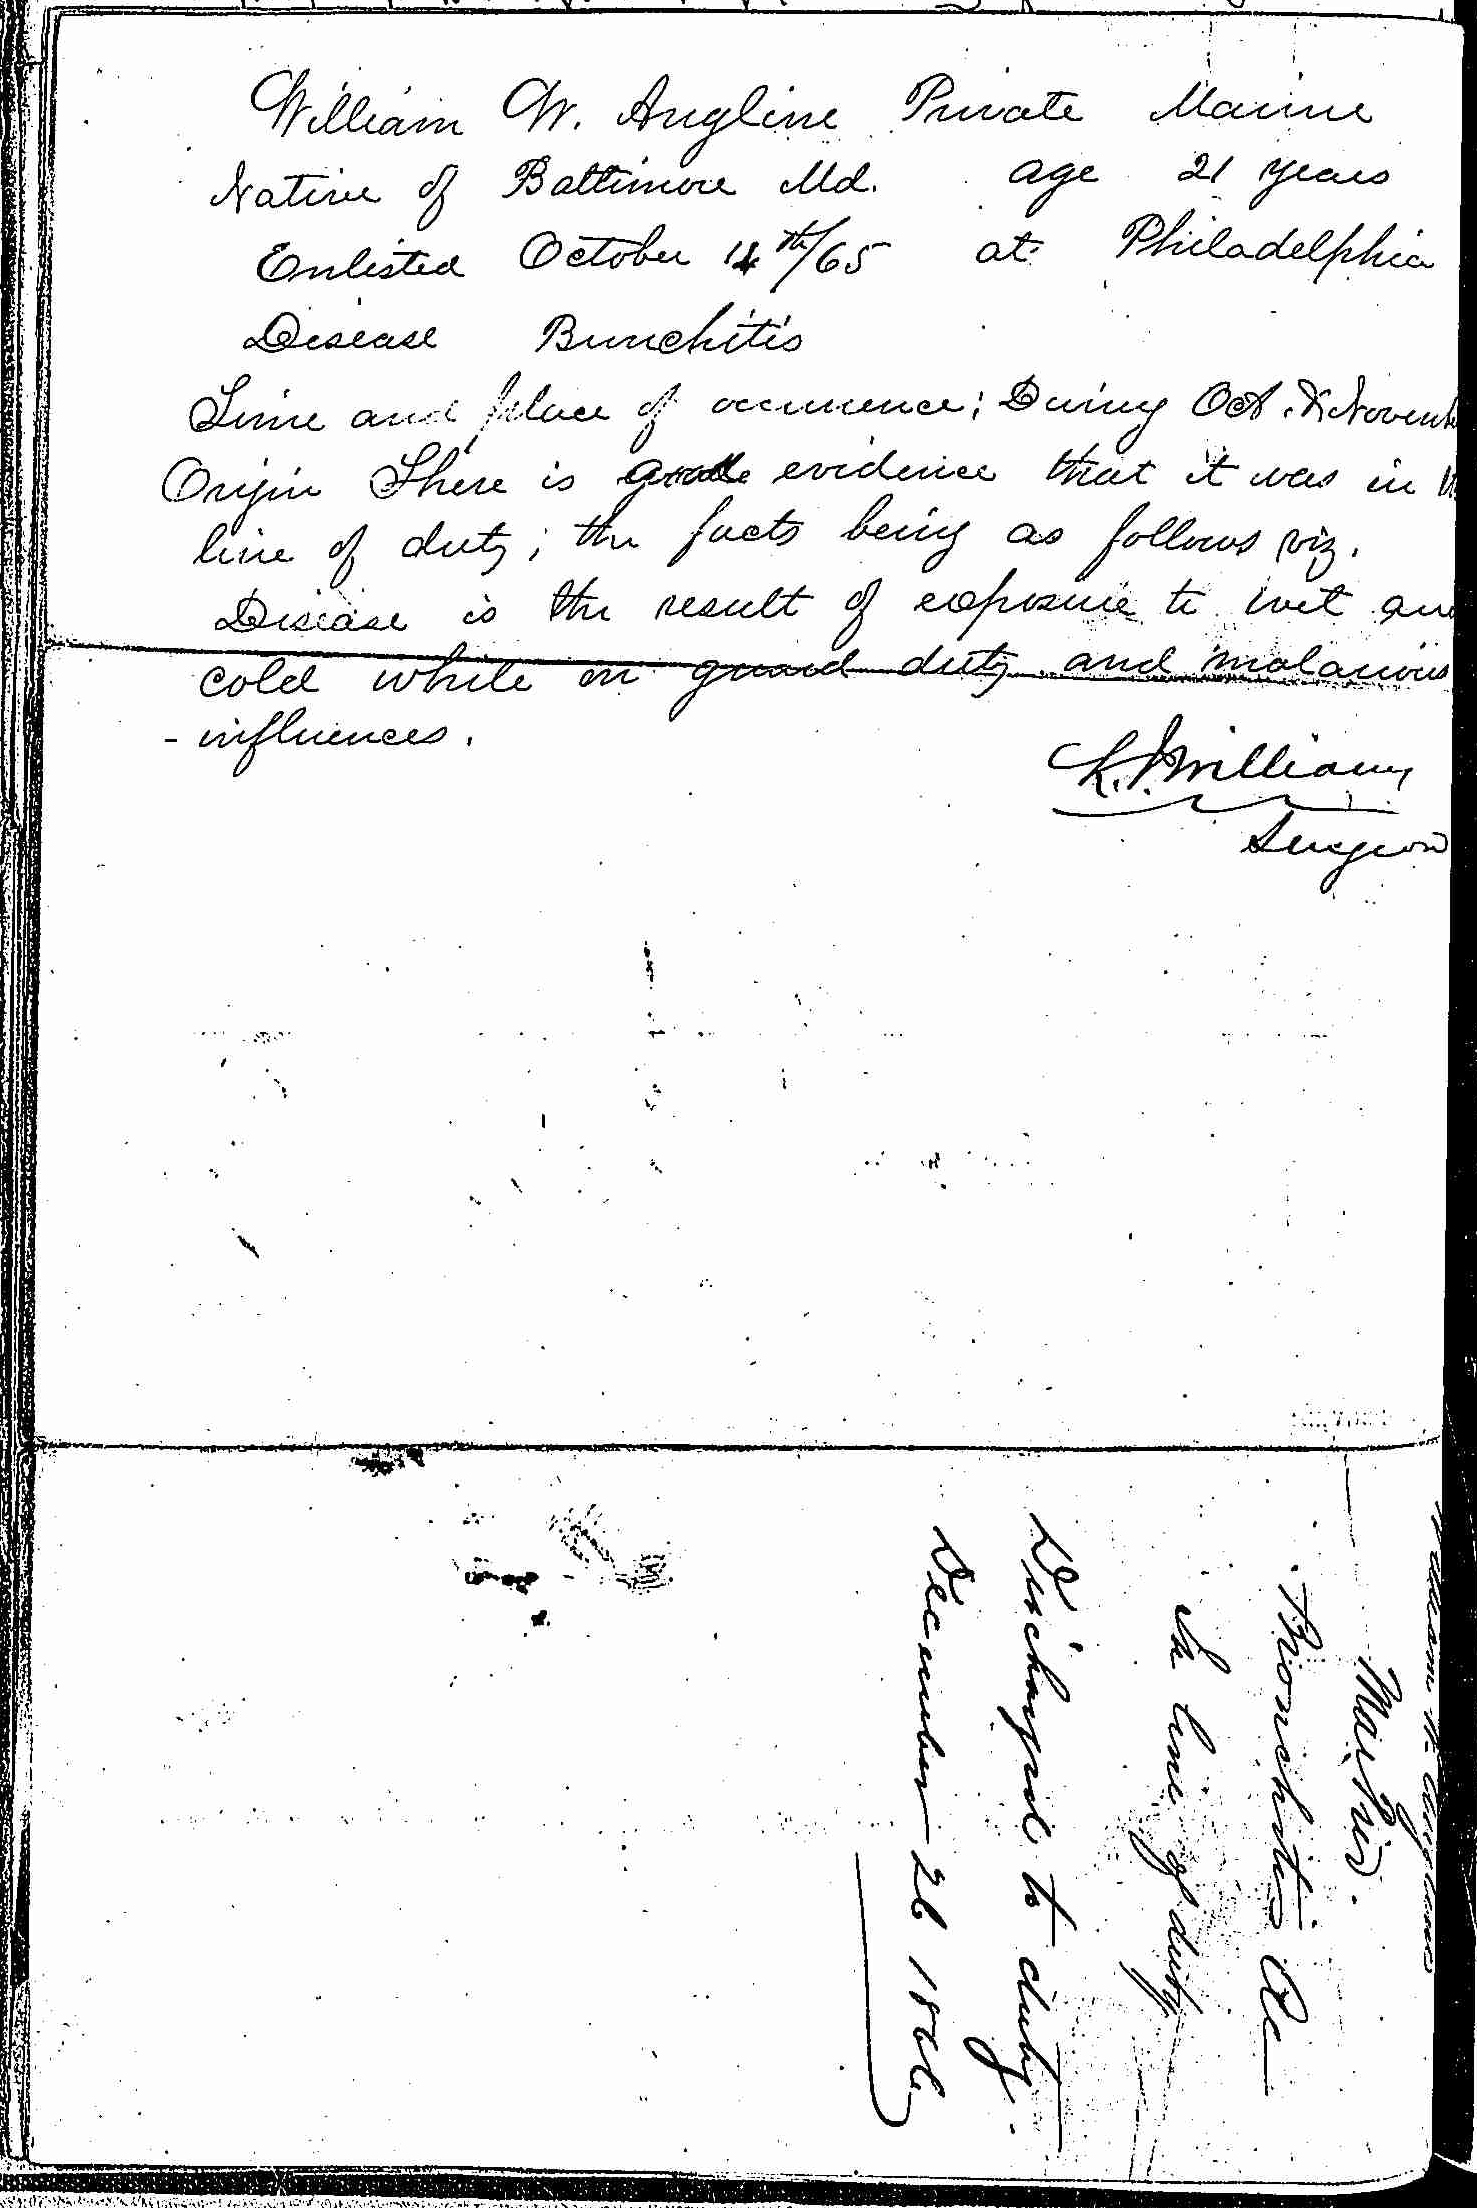 William W. Angline Private Marine
Native of Baltimore Md. age 21 years
Enlisted October 14th/65 at Philadelphia
Disease Brunchitis
Time and place of occurrence; During Oct. & Novemb
Origin There is evidence that it was in
line of duty; the facts being as follows viz.
Disease is the result of exposure to wet an
cold while on guard duty and malarious
- influences.
Williams
Surgeon
William W. Angline
Mar Priv.
Bronchitis Ac
In line of duty
Discharged to duty.
December 26 1866